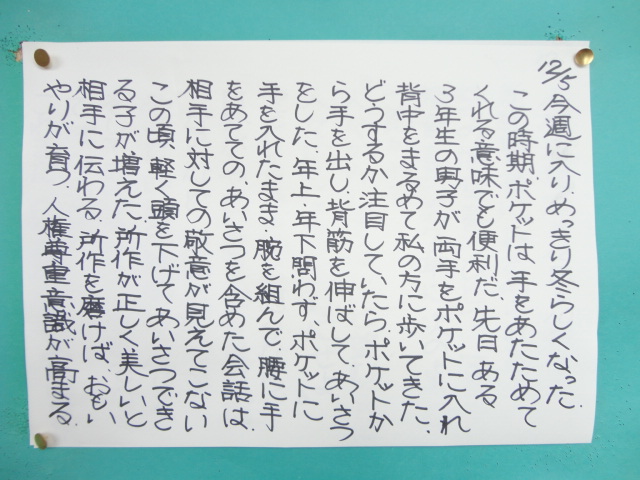 12/5 今週に入り、めっきり冬らしくなった。
この時期、ポケットは、手をあたためて
くれる意味でも便利だ。先日、ある
3年生の男子が、両手をポケットに入れ
背中をまるめて私の方に歩いてきた。
どうするか注目していたら、ポケットか
ら手を出し、背筋を伸ばして、あいさつ
をした。年上・年下問わず、ポケットに
手を入れたまま、腕を組んで、腰に手
をあてての、あいさつを含めた会話は、
相手に対しての敬意が見えてこない。
この頃、軽く頭を下げてあいさつでき
る子が増えた。所作が正しく美しいと
相手に伝わる。所作を磨けば、おもい
やりが育つ。人権尊重意識が高まる。